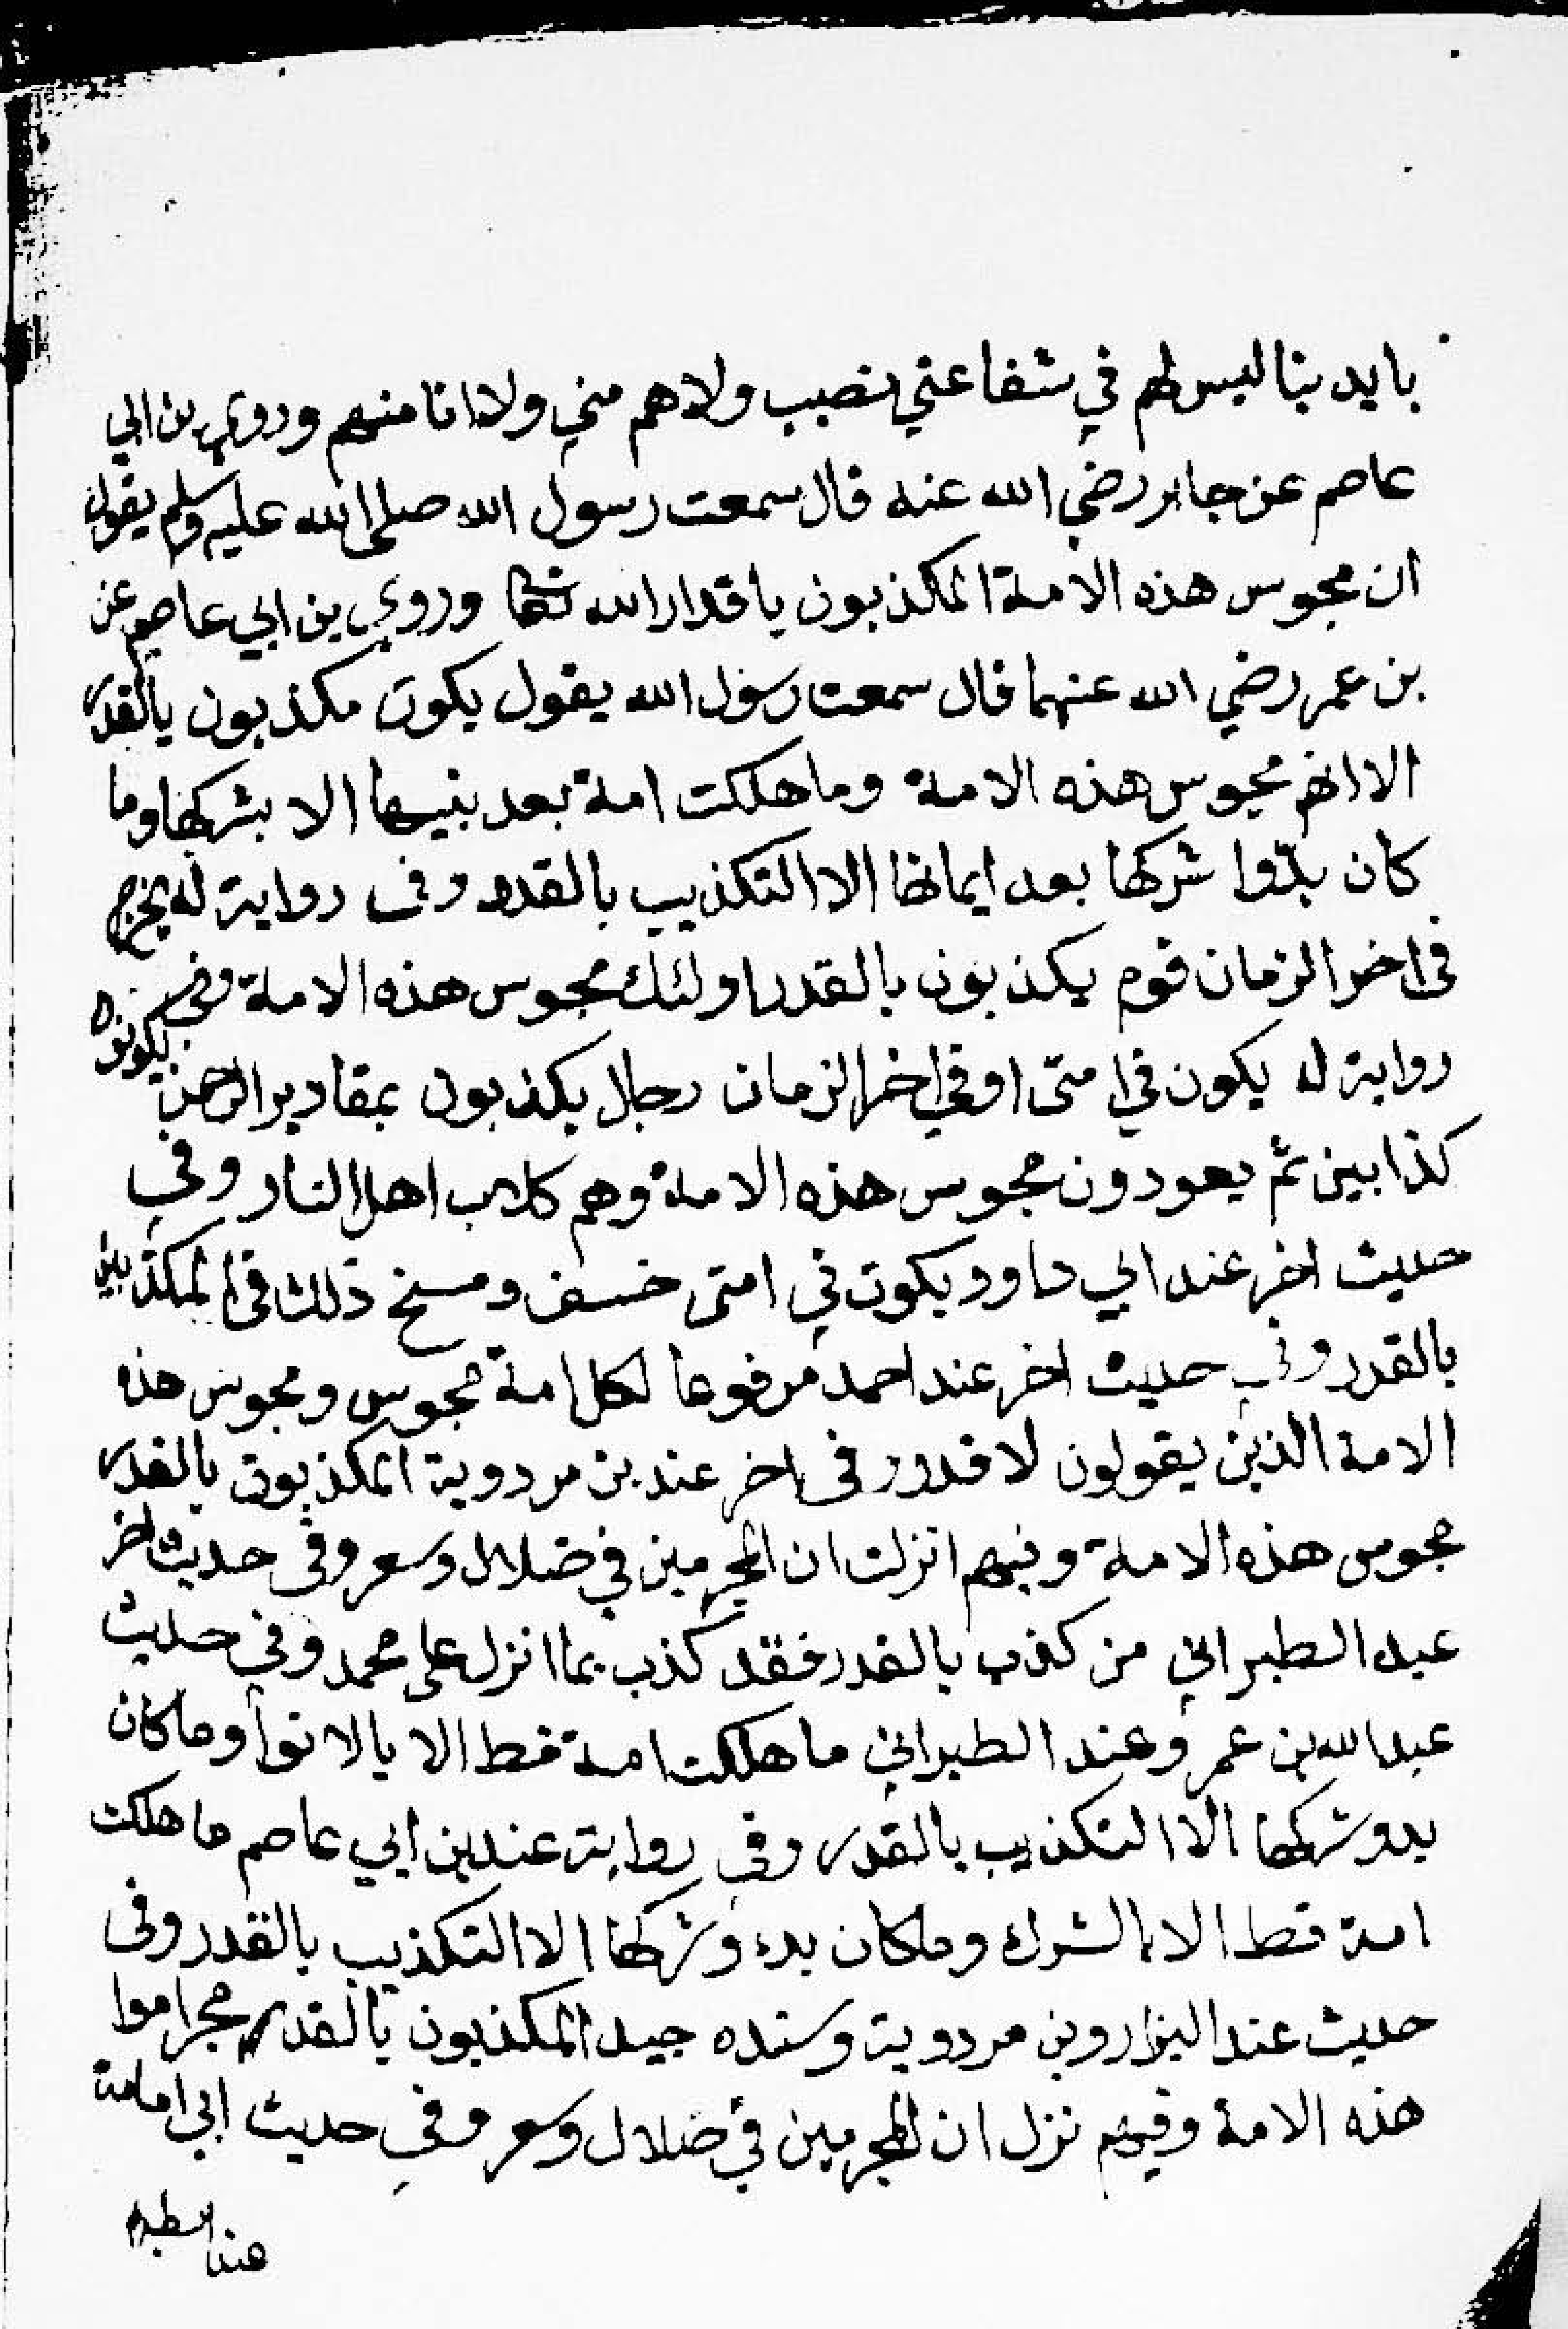 بايدينا ليس لهم في شفاعتي نصيب ولا هم مني ولا انا منهم وروي بن ابي
عاصم عن جابر رضي الله عنه قال سمعت رسول الله صلى الله عليه وسلم يقول
ان مجوس هذه الامة المكذبون باقدار الله تعا وروي بن ابي عاصم عن
بن عمر رضي الله عنهما قال سمعت رسول الله يقول يكون مكذبون بالقدر
الا انهم مجوس هذه الامة وما هلكت امة بعد نبيها الا بشركها وما
كان بدوا شركها بعد ايمانها الا التكذيب بالقدر وفي رواية له يخرج
في اخر الزمان قوم يكذبون بالقدر اولئك مجوس هذه الامة وفي
رواية له يكون في امتي او في اخر الزمان رجال يكذبون بمقادير الرحمن يكونون
كذابين ثم يعودون مجوس هذه الامة وهم كلاب اهل النار وفي
حديث اخر عند ابي داوود يكون في امتي خسف ومسخ ذلك في المكذبين
بالقدر وفي حديث اخر عند احمد مرفوعا لكل امة مجوس ومجوس هذه
الامة الذين يقولون لا قدر وفي اخر عند بن مردوية المكذبون بالقدر
مجوس هذه الامة وفيهم انزلت ان المجرمين في ضلال وسعر وفي حديث اخر
عند الطبراني من كذب بالقدر فقد كذب بما انزل على محمد وفي حديث
عبد الله بن عمر وعند الطبراني ما هلكت امة قط الا بالانوا وما كان
بدو شركها الا التكذيب بالقدر وفي رواية عند بن ابي عاصم ما هلكت
امة قط الا بالشرك وما كان بدء وشركها الا التكذيب بالقدر وفي
حديث عند البزار وبن مردوية وسنده جيد المكذبون بالقدر مجراموا
هذه الامة وفيهم نزل ان المجرمين في ضلال وسعر وفي حديث ابي امامة
عند